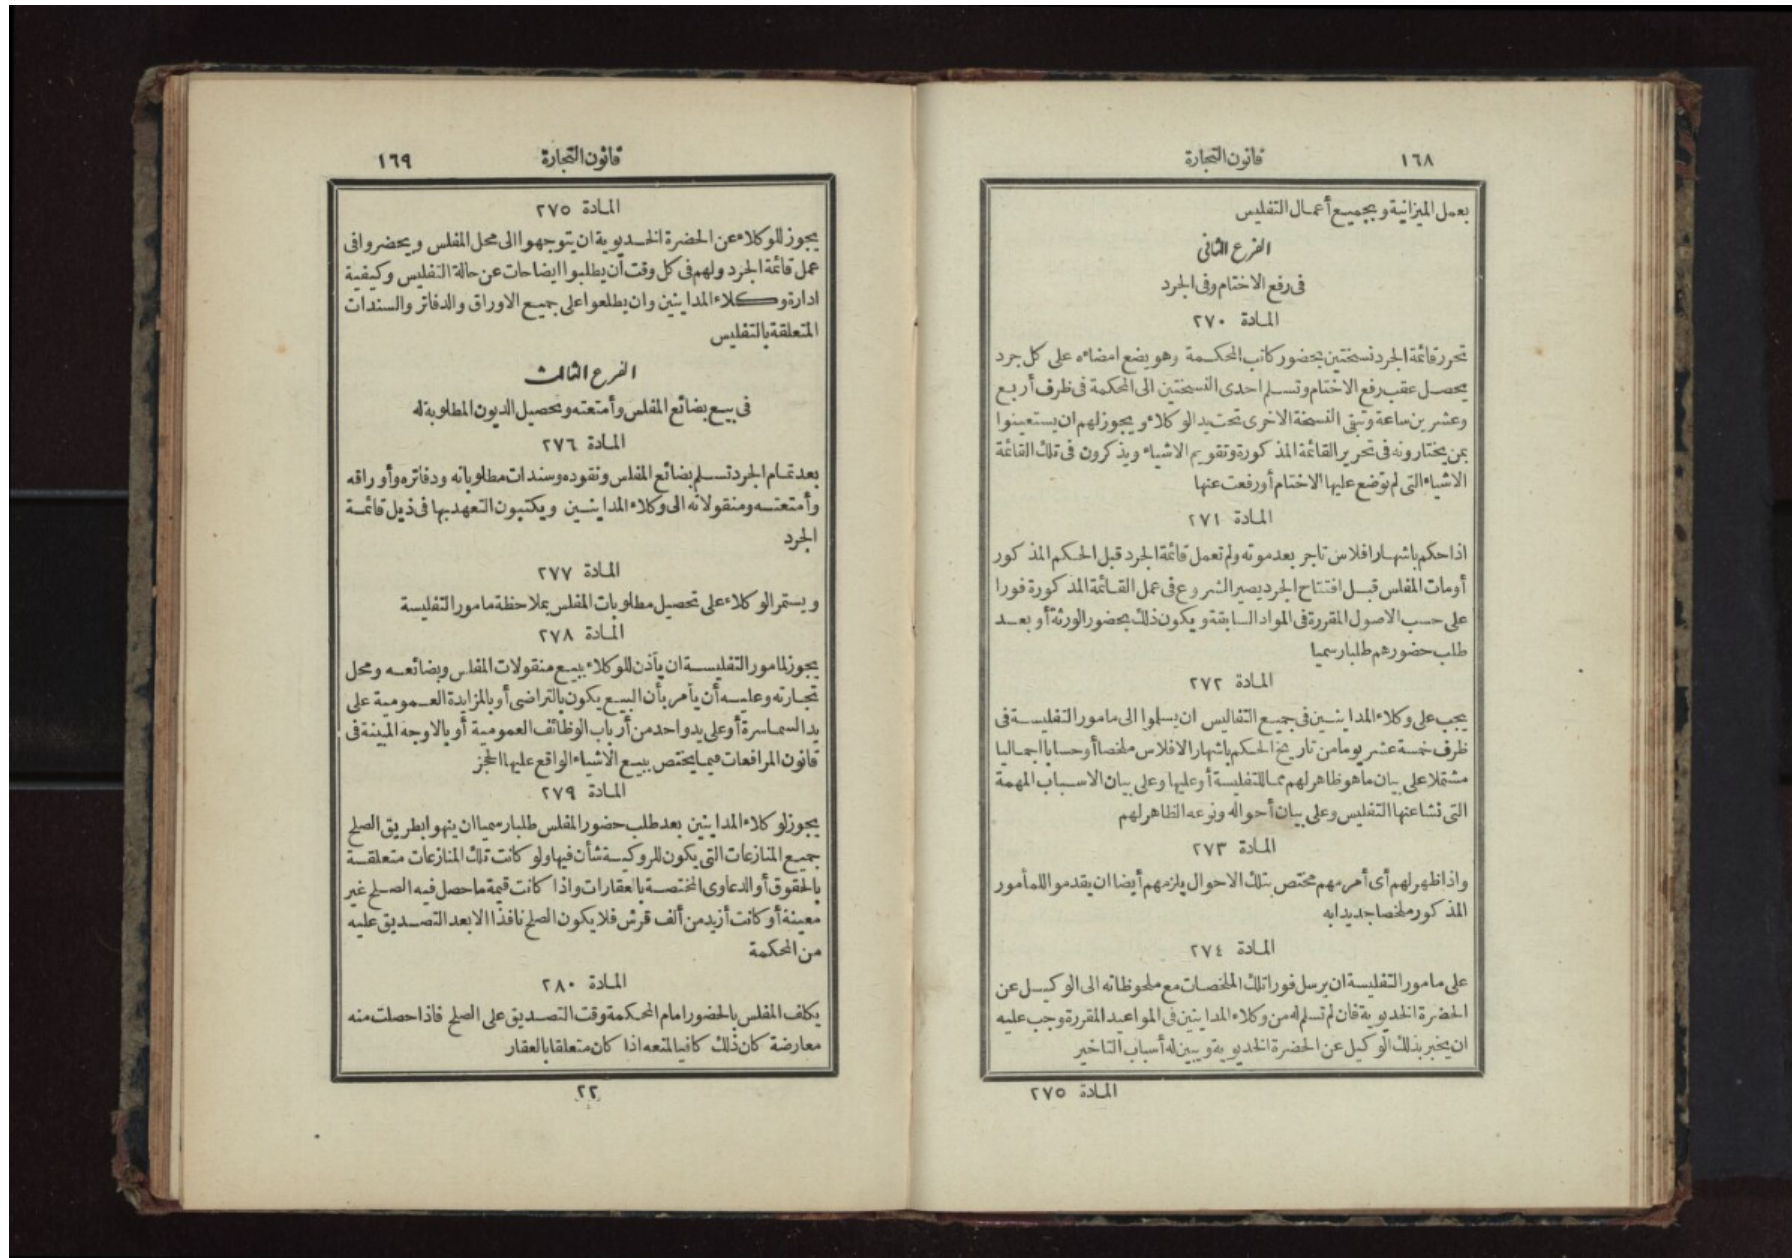 ١٦٨
قانون التجارة
بعمل الميزانية وبجميع أعمال التفليس
الفرع الثانى
فى رفع الاختام وفى الجرد
المادة ٢٧٠
تحرر قائمة الجرد نسختين بحضور كاتب المحكمة وهو يضع امضاءه على كل جرد
يحصل عقب رفع الاختام وتسلم احدى النسختين الى المحكمة فى ظرف أربع
وعشرين ساعة وتبقى النسخة الاخرى تحت يد الوكلاء ويجوز لهم ان يستعينوا
بمن يختارونه فى تحرير القائمة المذكورة وتقويم الاشياء ويذكرون فى تلك القائمة
الاشياء التى لم توضع عليها الاختام أو رفعت عنها
المادة ٢٧١
اذا حكم باشهار افلاس تاجر بعد موته ولم تعمل قائمة الجرد قبل الحكم المذكور
أو مات المفلس قبل افتتاح الجرد يصير الشروع فى عمل القائمة المذكورة فورا
على حسب الاصول المقررة فى المواد السابقة ويكون ذلك بحضور الورثة أو بعد
طلب حضورهم طلبا رسميا
المادة ٢٧٢
يجب على وكلاء المداينين فى جميع التفاليس ان يسلموا الى مامور التفليسة فى
ظرف خمسة عشر يوما من تاريخ الحكم باشهار الافلاس ملخصا أو حسابا اجماليا
مشتملا على بيان ما هو ظاهر لهم مما للتفليسة أو عليها وعلى بيان الاسباب المهمة
التى نشا عنها التفليس وعلى بيان أحواله ونوعه الظاهر لهم
المادة ٢٧٣
واذا ظهر لهم أى أمر مهم مختص بتلك الاحوال يلزمهم أيضا ان يقدموا للمأمور
المذكور ملخصا جديدا به
المادة ٢٧٤
على مامور التفليسة ان يرسل فورا تلك الملخصات مع ملحوظاته الى الوكيل عن
الحضرة الخديوية فان لم تسلم له من وكلاء المداينين فى المواعيد المقررة وجب عليه
ان يخبر بذلك الوكيل عن الحضرة الخديوية ويبين له أسباب التاخير
المادة ٢٧٥
قانون التجارة
١٦٩
المادة ٢٧٥
يجوز للوكلاء عن الحضرة الخديوية ان يتوجهوا الى محل المفلس ويحضروا فى
عمل قائمة الجرد ولهم فى كل وقت أن يطلبوا ايضاحات عن حالة التفليس وكيفية
ادارة وكلاء المداينين وان يطلعوا على جميع الاوراق والدفاتر والسندات
المتعلقة بالتفليس
الفرع الثالث
فى بيع بضائع المفلس وأمتعته وتحصيل الديون المطلوبة له
المادة ٢٧٦
بعد تمام الجرد تسلم بضائع المفلس ونقوده وسندات مطلوباته ودفاتره وأوراقه
وأمتعته ومنقولاته الى وكلاء المداينين ويكتبون التعهد بها فى ذيل قائمة
الجرد
المادة ٢٧٧
ويستمر الوكلاء على تحصيل مطلوبات المفلس بملاحظة مامور التفليسة
المادة ٢٧٨
يجوز لمامور التفليسة ان يأذن للوكلاء ببيع منقولات المفلس وبضائعه ومحل
تجارته وعليه أن يأمر بأن البيع يكون بالتراضى أو بالمزايدة العمومية على
يد السماسرة أو على يد واحد من أرباب الوظائف العمومية أو بالاوجه المبينة فى
قانون المرافعات فيما يختص ببيع الاشياء الواقع عليها الحجز
المادة ٢٧٩
يجوز لوكلاء المداينين بعد طلب حضور المفلس طلبا رسميا ان ينهوا بطريق الصلح
جميع المنازعات التى يكون للروكية شأن فيها ولو كانت تلك المنازعات متعلقة
بالحقوق أو الدعاوى المختصة بالعقارات واذا كانت قيمة ما حصل فيه الصلح غير
معينة أو كانت أزيد من ألف قرش فلا يكون الصلح نافذا الا بعد التصديق عليه
من المحكمة
المادة ٢٨٠
يكلف المفلس بالحضور امام المحكمة وقت التصديق على الصلح فاذا حصلت منه
معارضة كان ذلك كافيا لمنعه اذا كان متعلقا بالعقار
٢٢